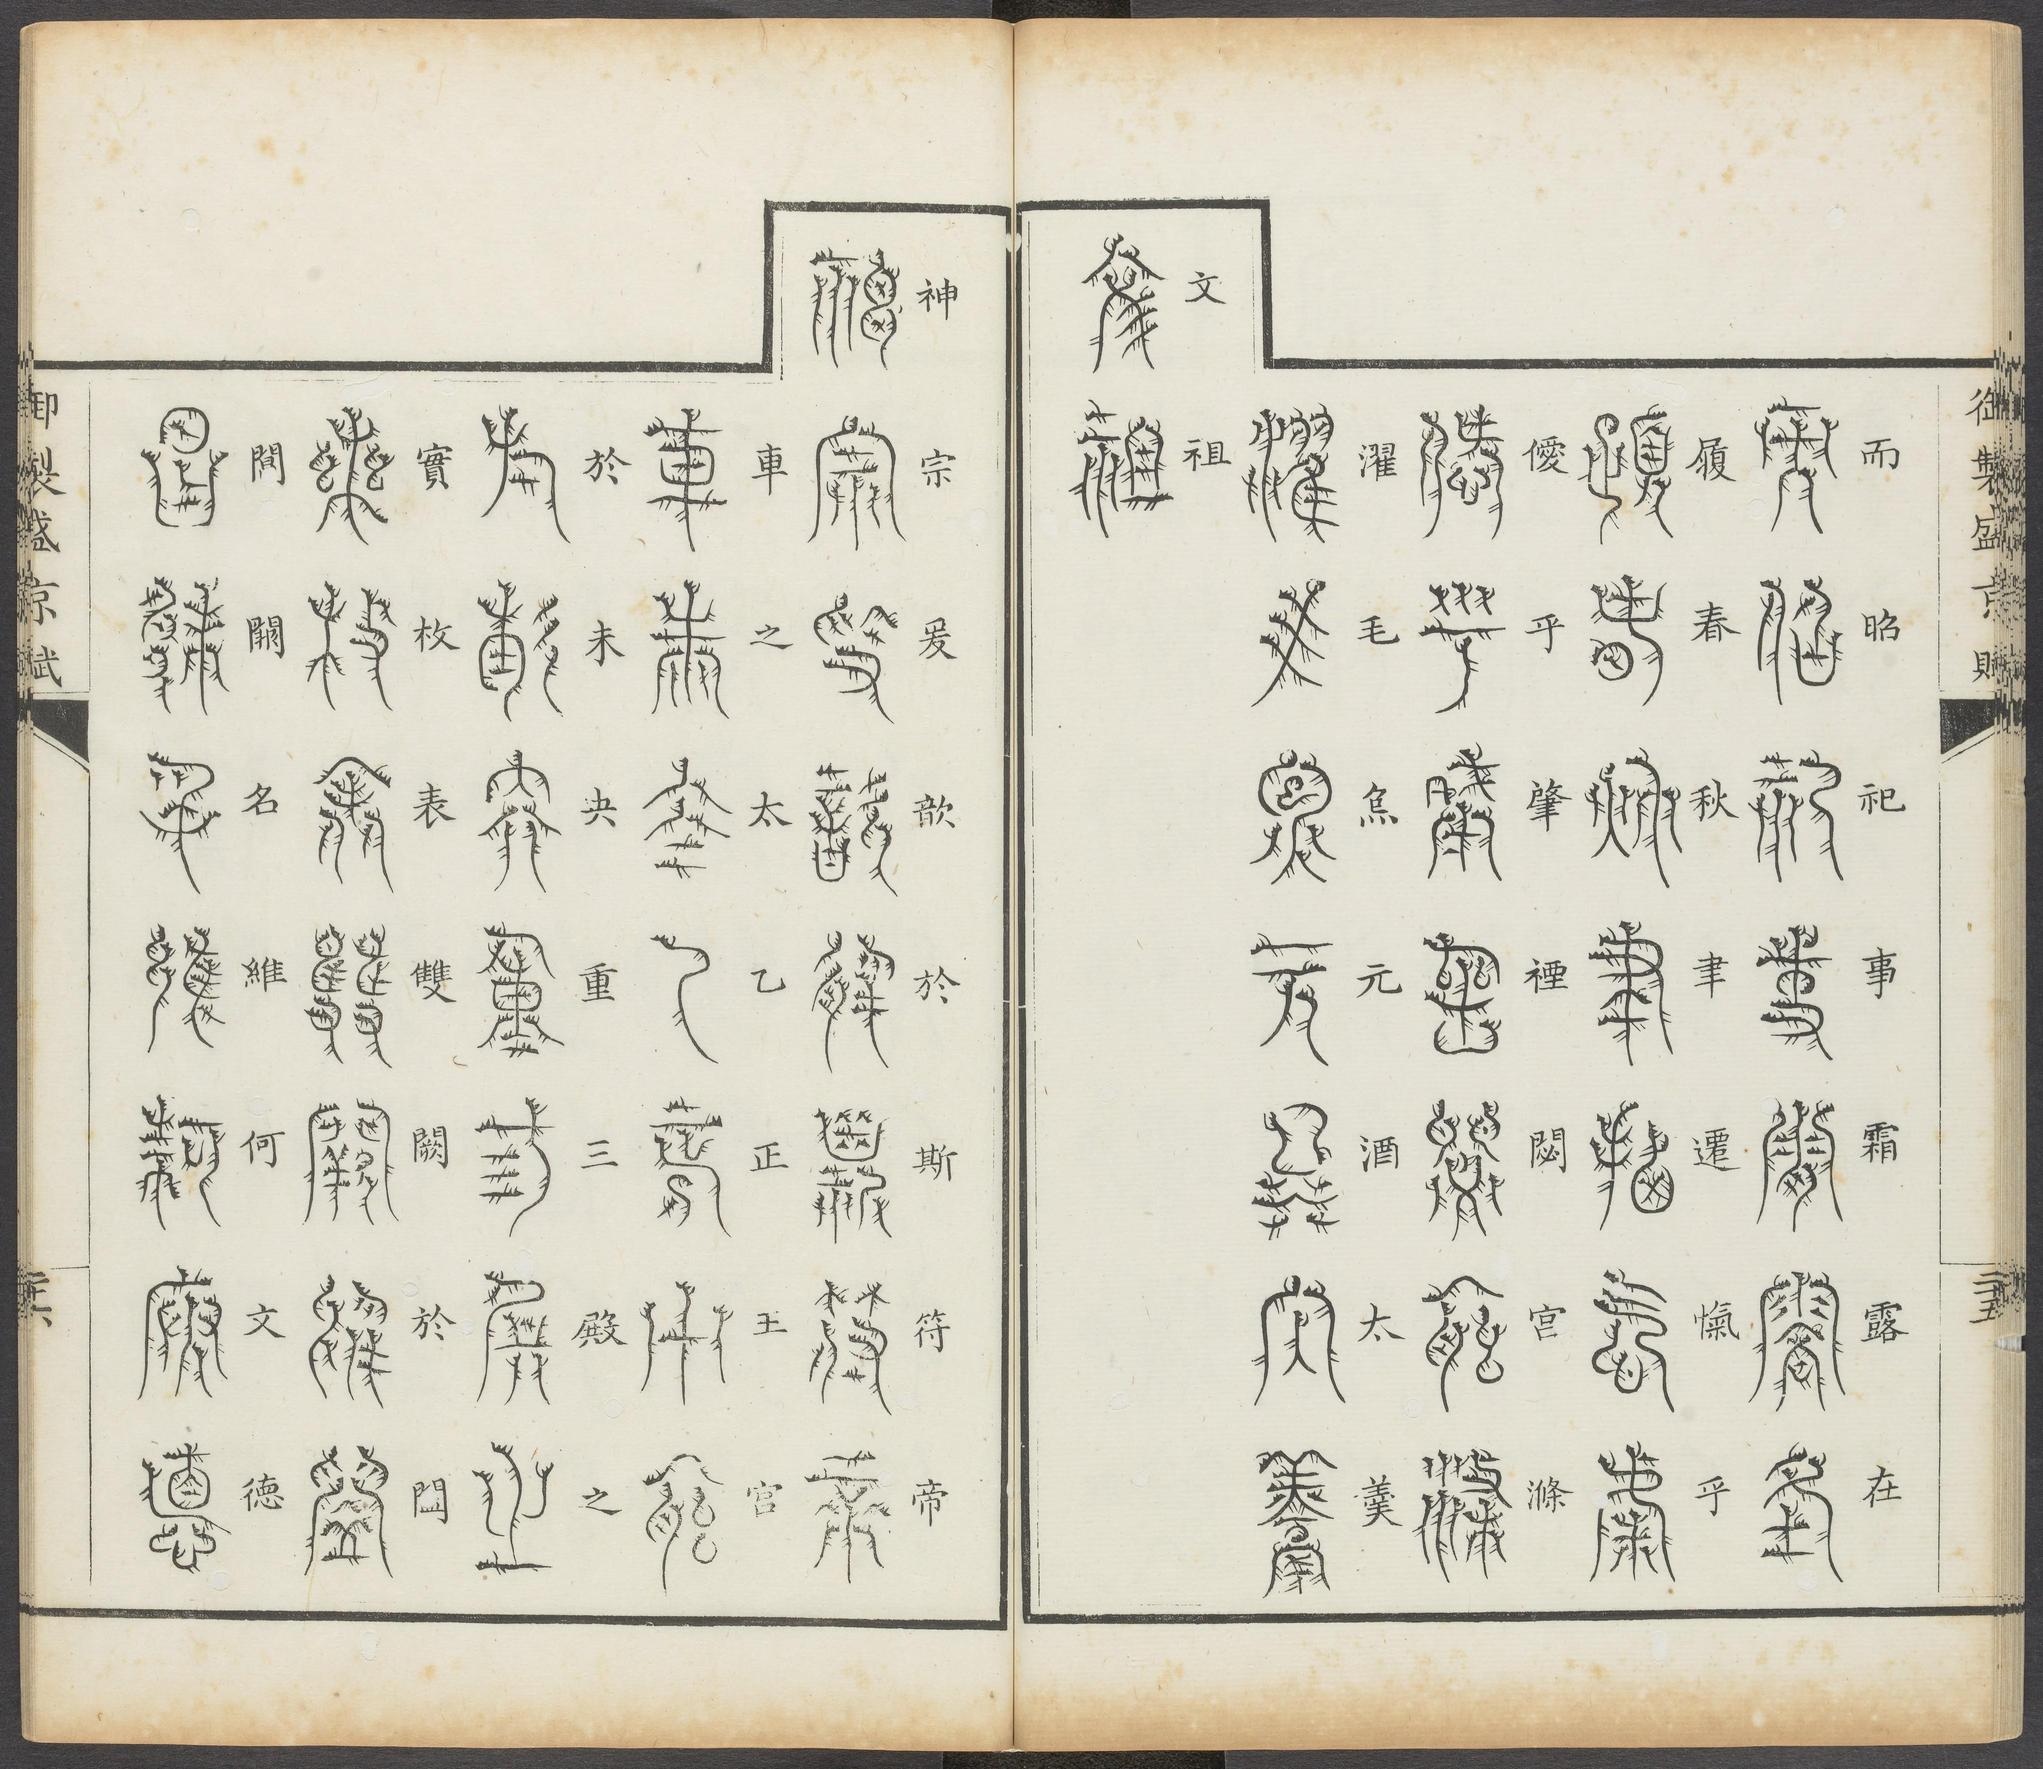 御製盛京賦
而昭祀事霜露在
履春秋聿遷愾乎
僾乎肇禋閟宮滌
濯毛炰元酒太羹
文祖
神宗爰歆於斯符帝
車之太乙正王宮
於未央重三殿之
實枚表雙闕於
名維何文德
御製盛京賦